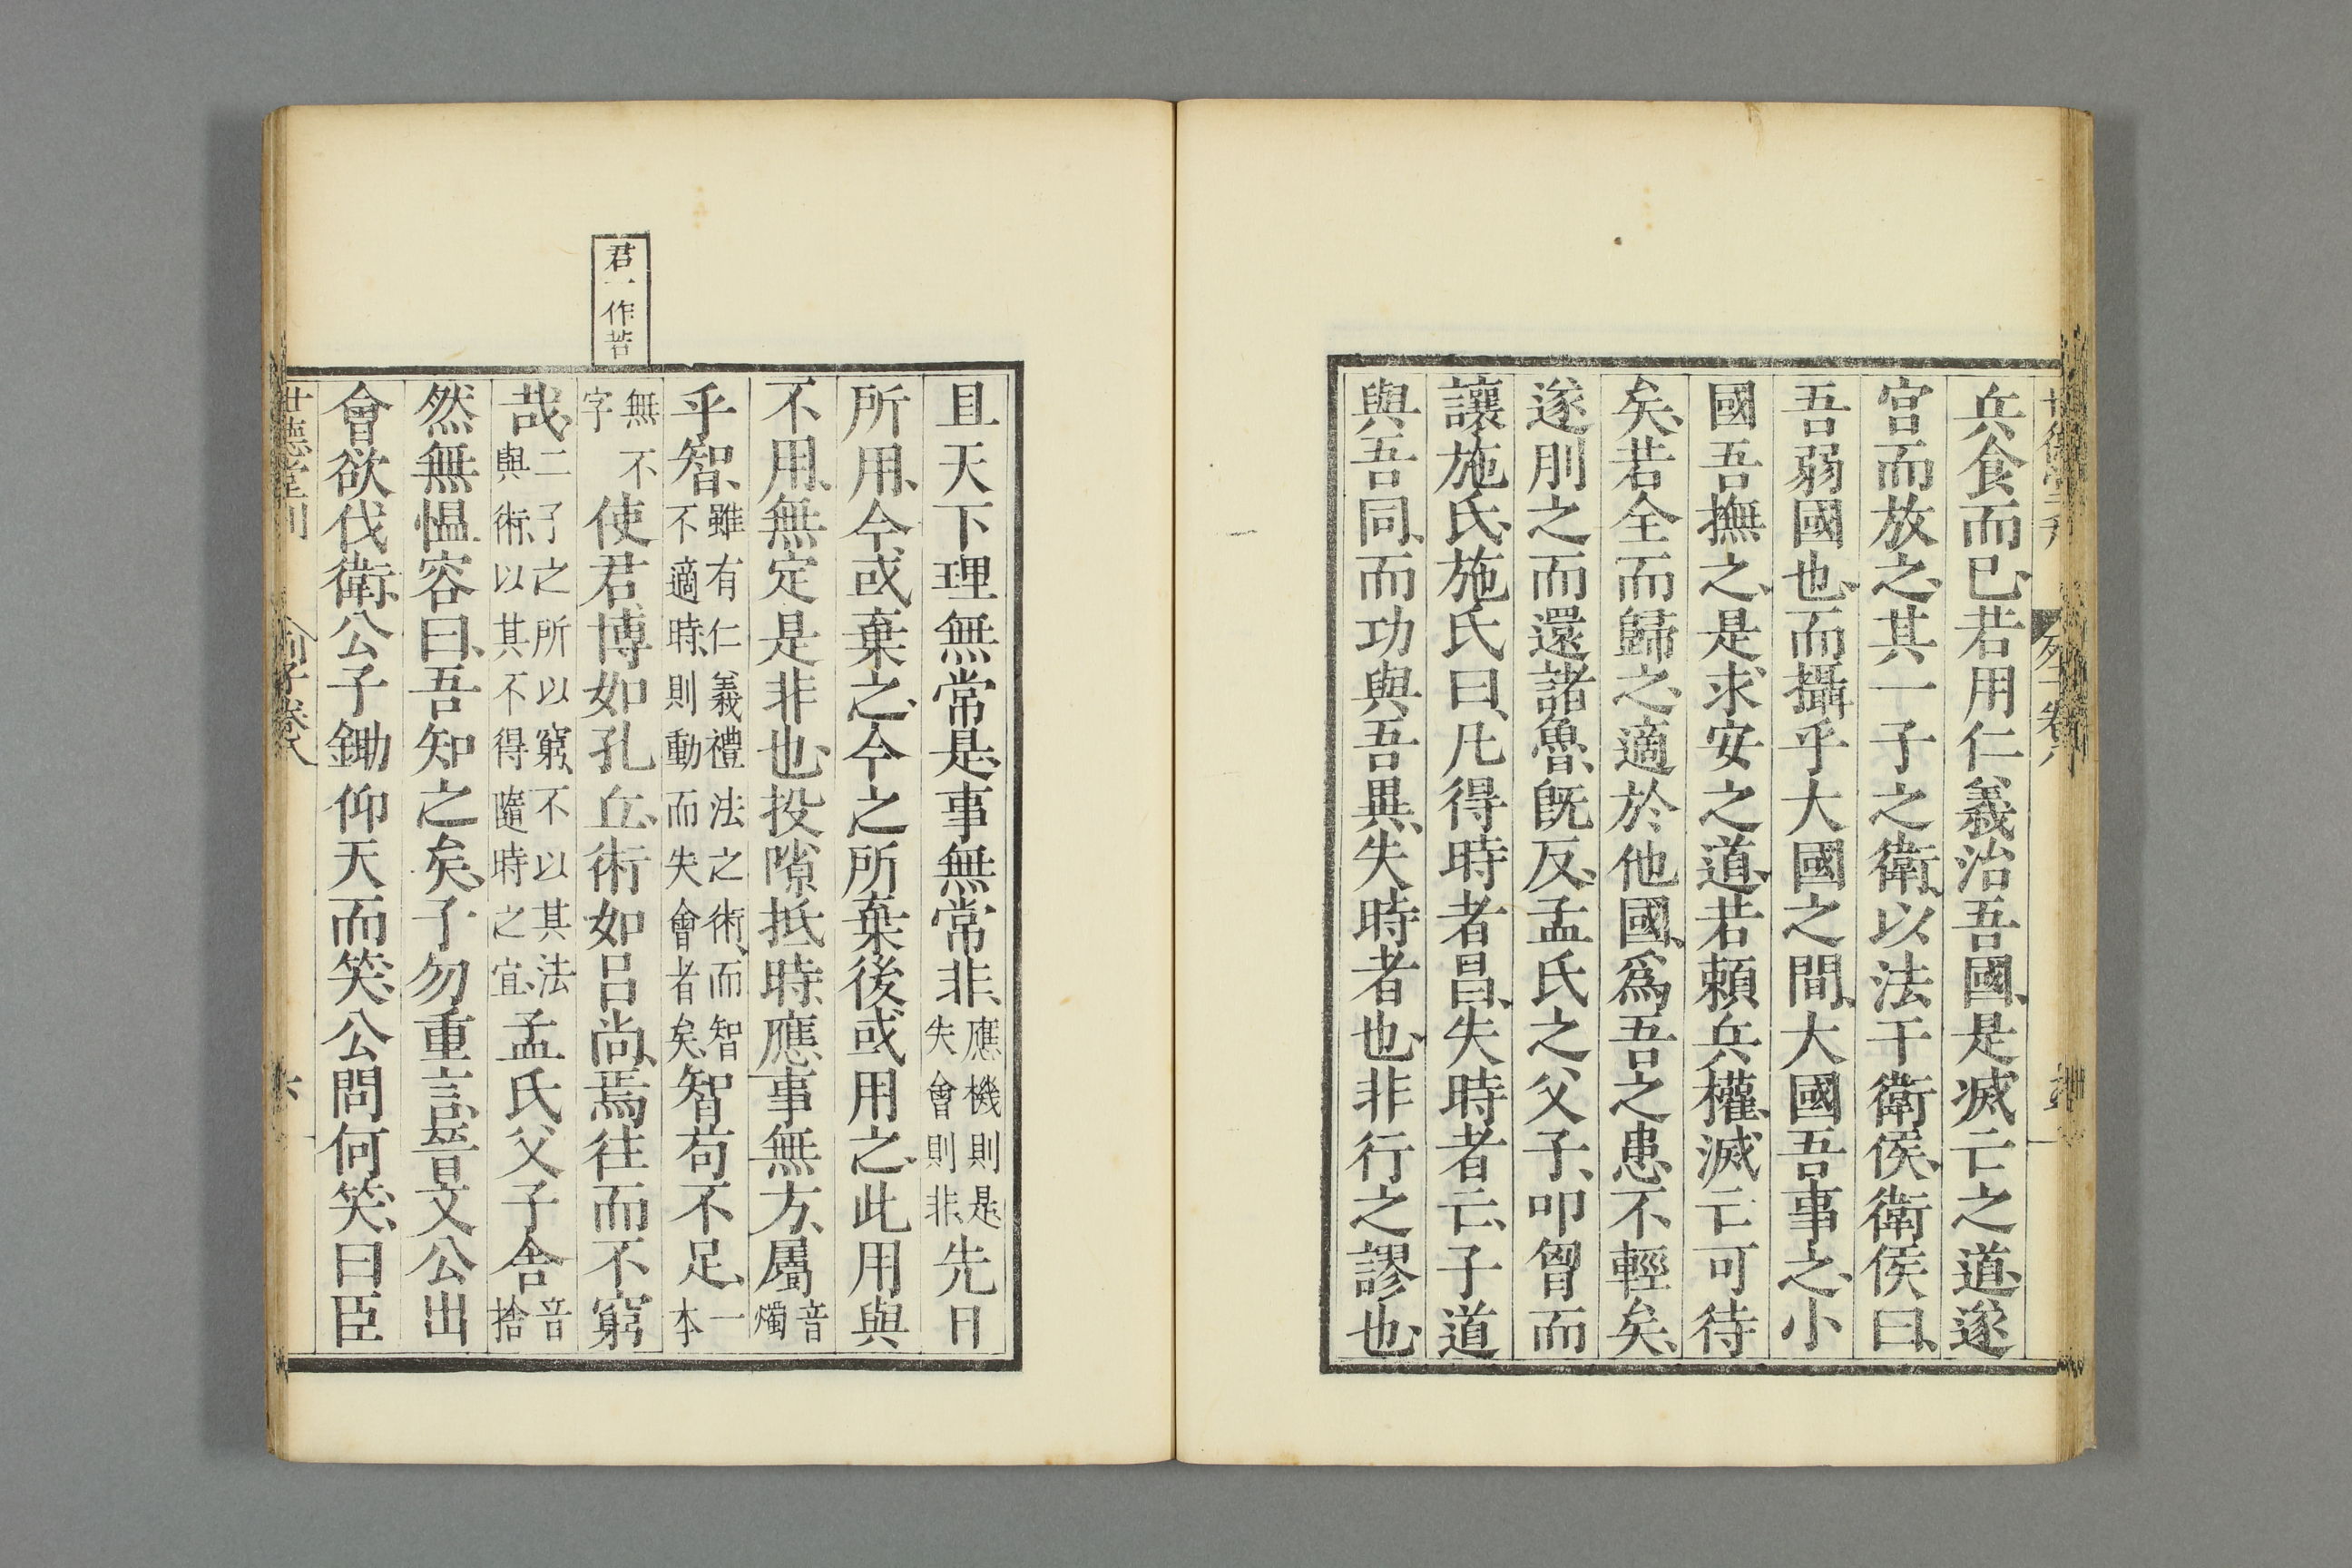 兵食而已、若用仁義治吾國、是滅亡之道、遂
宮而放之、其一子之衛、以法干衛侯、衛侯曰、
吾弱國也、而攝乎大國之間、大國吾事之、小
國吾撫之、是求安之道、若賴兵權、滅亡可待
矣、若全而歸之、適於他國、爲吾之患、不輕矣、
遂刖之而還諸魯、既反、孟氏之父子、叩胷而
讓施氏、施氏曰、凡得時者昌、失時者亡、子道
與吾同、而功與吾異、失時者也、非行之謬也、
君一作若
且天下理無常是、事無常非、應機則是、失會則非、先日
所用、今或棄之、今之所棄、後或用之、此用與
不用、無定是非也、投隙抵時、應事無方、屬音燭
乎智、雖有仁義禮法之術、而智不適時、則動而失會者矣、智苟不足、一本
無不字使君、博如孔丘、術如呂尚、焉往而不窮
哉、二子之所以窮、不以其法與術、以其不得隨時之宜、孟氏父子舍音捨
然無慍容曰、吾知之矣、子勿重言、晉文公出
會欲伐衛、公子鋤仰天而笑、公問何笑、曰臣
世德堂刊
列子卷八
六